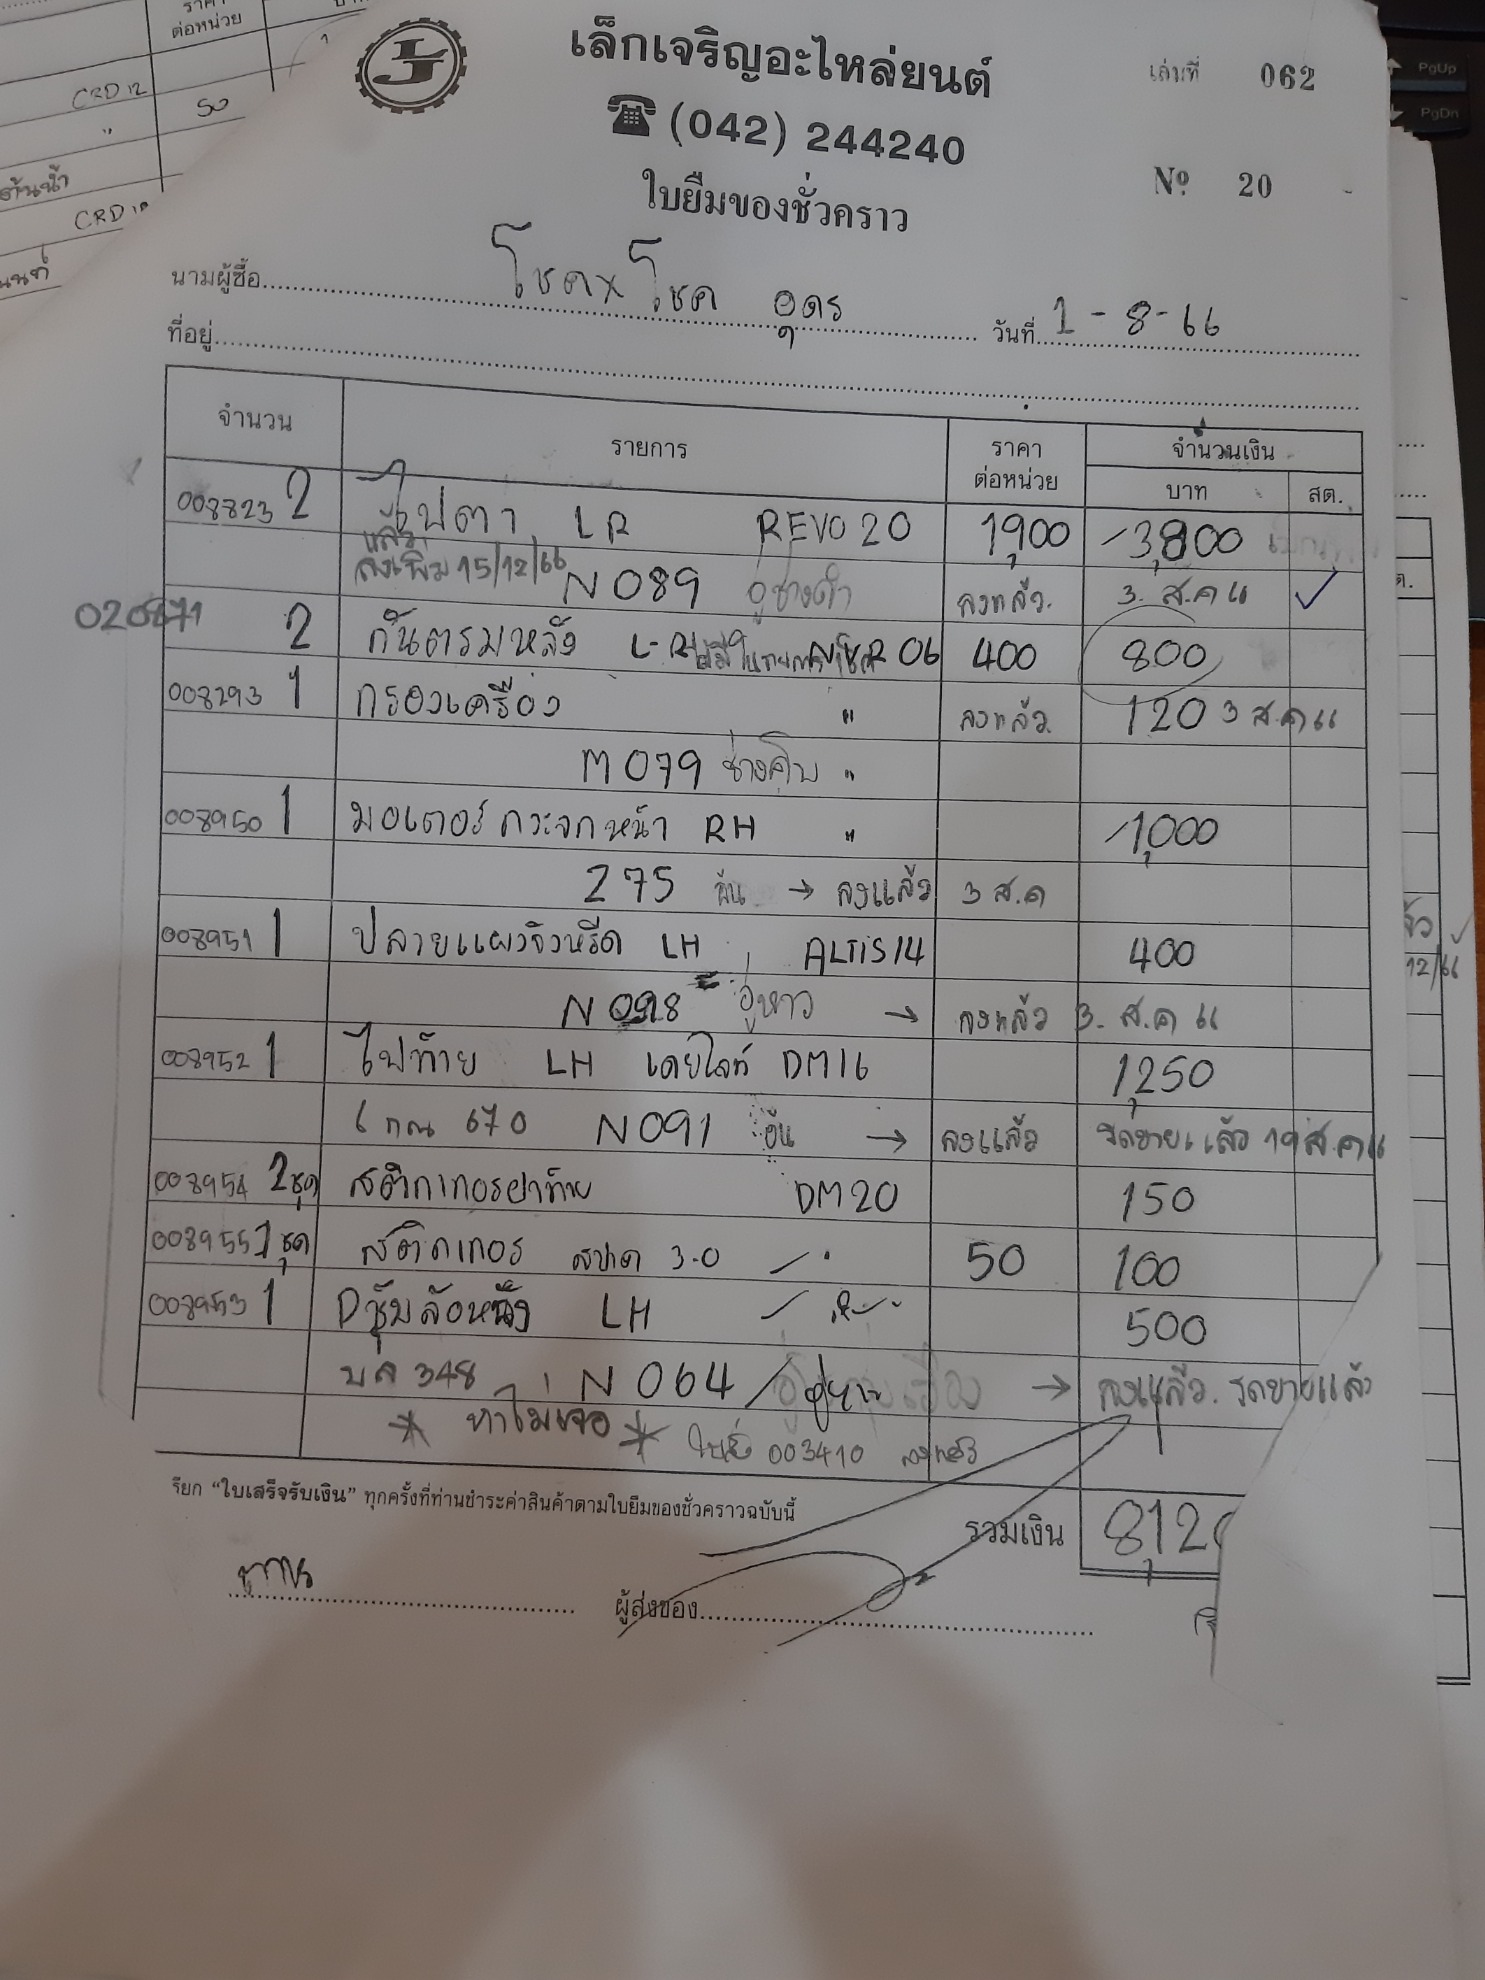 ราคา
ต่อหน่วย
CRD 12
" 50
CRD
เล็กเจริญอะไหล่ยนต์
เล่มที่ 062
(042) 244240
Nº 20
ใบยืมของชั่วคราว
นามผู้ซื้อ โชคxโชค อุดร วันที่ 1-8-66
ที่อยู่
จำนวน รายการ ราคา ต่อหน่วย จำนวนเงิน
บาท สต.
008823 2 ไฟตา LR REVO 20 1,900 3,800
ลงเพิ่ม 15/12/66 N 089 อู่ช่างดำ ลงแล้ว. 3. ส.ค 66 ✓
020871 2 กันตรมหลัง L-R NVR 06 400 800
008293 1 กรองเครื่อง " ลงแล้ว. 120 3 ส.ค 66
M 079 "
008950 1 มอเตอร์กระจกหน้า RH " 1,000
275 → ลงแล้ว 3 ส.ค
008951 1 ปลายแผงจิ้งหรีด LH ALTIS 14 400
N 098 อู่หาว → ลงแล้ว 3. ส.ค 66
008952 1 ไฟท้าย LH เดย์ไลท์ DM16 1,250
6 กณ 670 N 091 → ลงแล้ว รถขายแล้ว 19 ส.ค 66
008954 2 ชุด สติกเกอร์ฝาท้าย DM20 150
008955 2 ชุด สติกเกอร์ สปาด 3.0 " 50 100
008953 1 ซุ้มล้อหลัง LH 500
บล 348 N 064 → ลงแล้ว. รถขายแล้ว
* หาไม่เจอ * 003410 ลงแล้ว
รียก “ใบเสร็จรับเงิน” ทุกครั้งที่ท่านชำระค่าสินค้าตามใบยืมของชั่วคราวฉบับนี้
รวมเงิน 8,12
ผู้ส่งของ
PgUp
PgDn